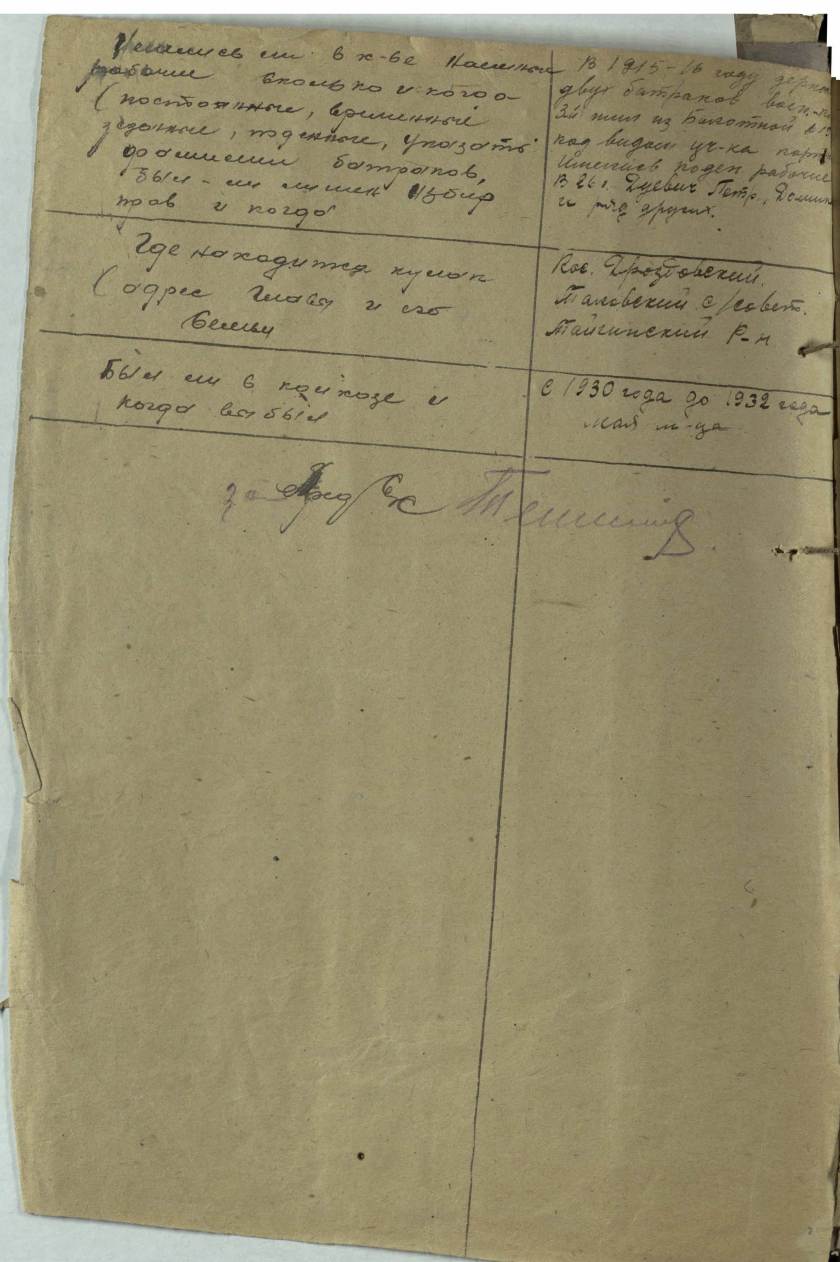 Имелись ли в х-ве наемные
рабочие сколько и кого
(постоянные, временные
сдельные, поденные, указать
фамилии батраков,
был-ли лишен избир
прав и когда
В 1915-16 году держал
двух батраков воен.-
3й жил из Болотной
под видом уч-ка
Имелись поден рабочие
В 26 г. Дуевич Петр,
и ряд других.
Где находится кулак
(адрес главы и его
семьи
Пос. Дроздовский.
Таловский с/совет.
Тайгинский Р-н
Был ли в колхозе и
когда выбыл
С 1930 года до 1932 года
мая м-ца
зам Пред с/с